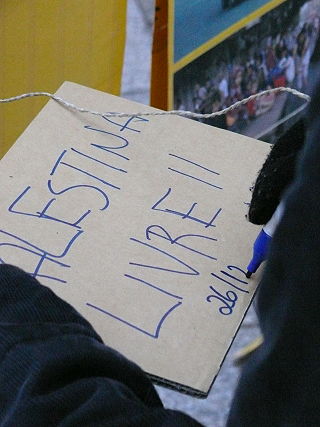 PALESTINA
LIVRE!!
26/12